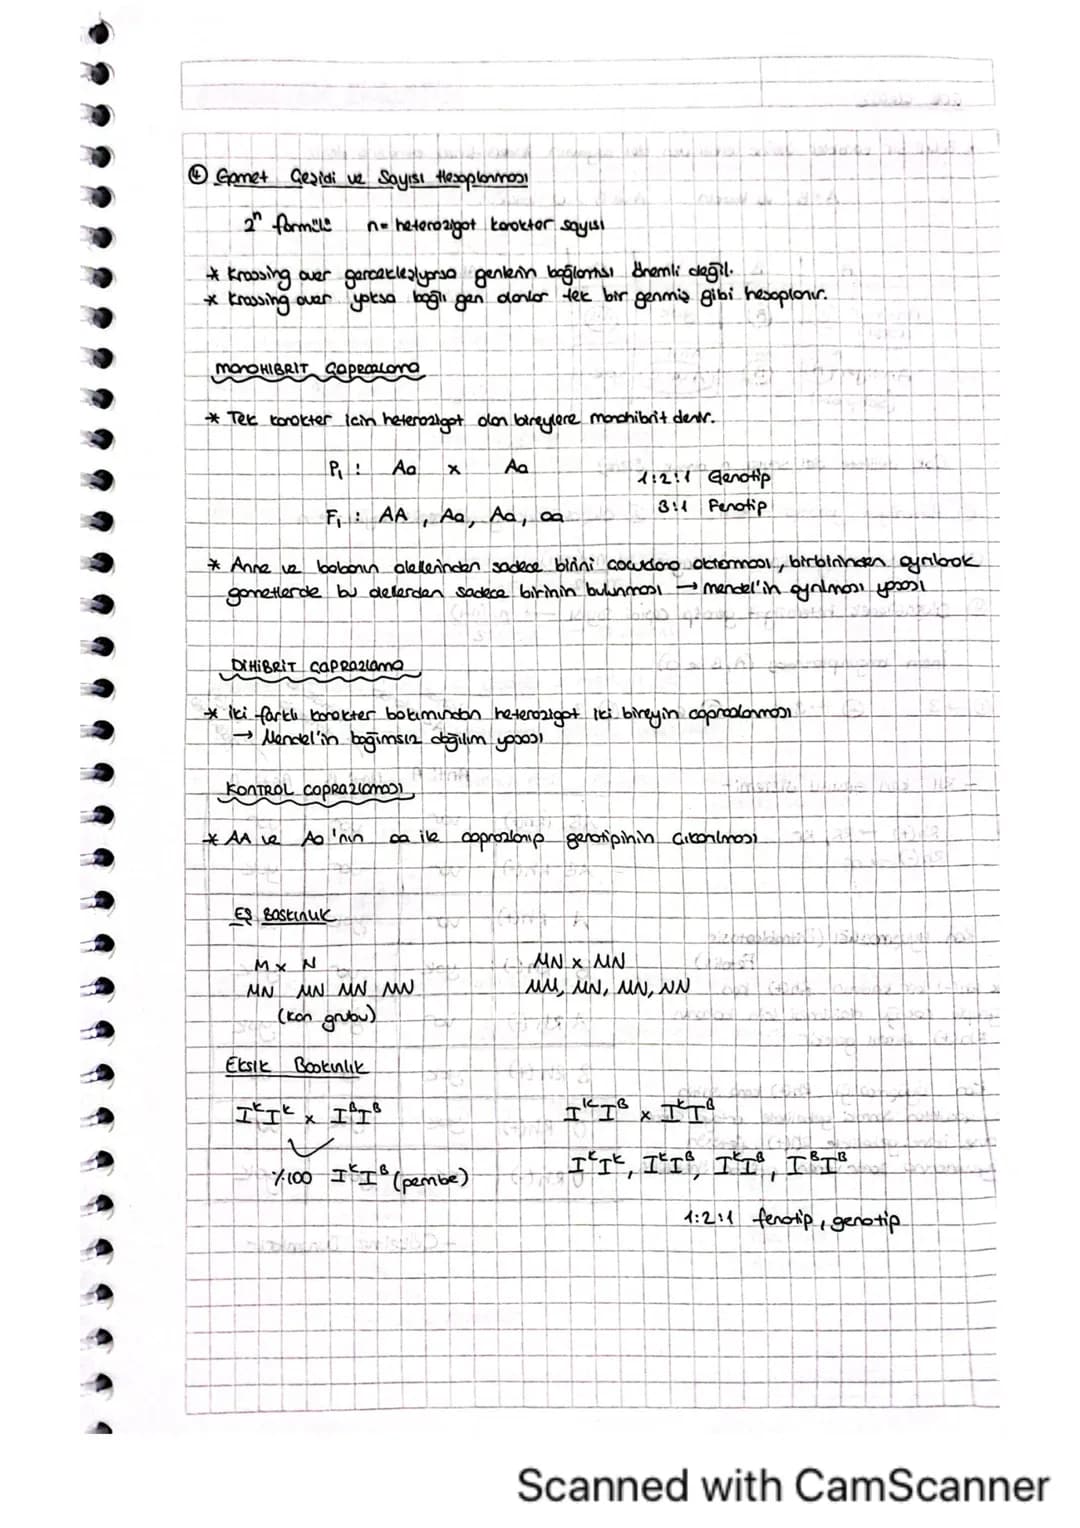 ④ Gamet Çeşidi ve Sayısı Hesaplanması
2ⁿ formülü n= heterozigot karakter sayısı
* Krossing over gerçekleşiyorsa genlerin bağlantısı önemli değil.
* Krossing over yoksa bağlı gen olanlar tek bir genmiş gibi hesaplanır.
MONOHİBRİT Çaprazlama
* Tek karakter için heterozigot olan bireylere monohibrit denir.
P₁ : Aa x Aa
1:2:1 Genotip
3:1 Fenotip
F₁ : AA, Aa, Aa, aa
* Anne ve babanın alellerinden sadece birini çocuğara aktarması, birbirinden ayrılarak
gametlerde bu alellerden sadece birinin bulunması → mendel'in ayrılması yasası
DİHİBRİT ÇAPRAZlama
* iki farklı karakter bakımından heterozigot iki bireyin çaprazlanması
→ Mendel'in bağımsız dağılım yasası
KONTROL ÇAPRAZlaması
* AA ve Aa'nın aa ile çaprazlanıp genotipinin çıkarılması
EŞ BASKINLIK
M x N
MN MN MN MN
(kan grubu)
MN x MN
MM, MN, MN, NN
Eksik Baskınlık
IᴷIᴷ x IᴮIᴮ
%100 IᴷIᴮ (pembe)
IᴷIᴮ x IᴷIᴮ
IᴷIᴷ, IᴷIᴮ, IᴷIᴮ, IᴮIᴮ
1:2:1 fenotip, genotip
Scanned with CamScanner